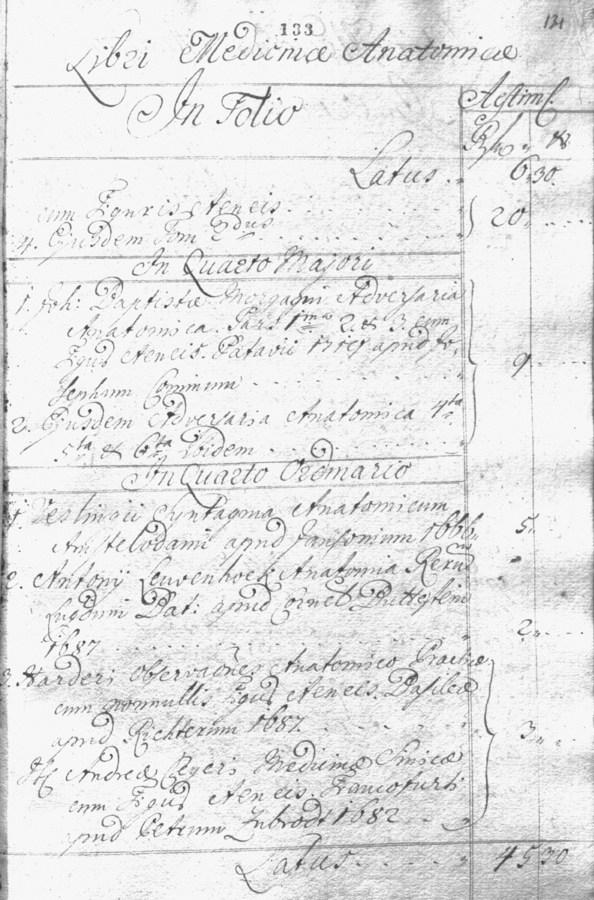 133
131
Libri Medicinæ Anatomicæ
In Folio
Æstim.
Rf. x
Latus . 6 30
cum Figuris Æneis
4. Ejusdem Tom 2dus . . . 20
In Quarto Majori
1. Joh: Baptistæ Morgagni Adversaria
Anatomica. Pars 1ma 2. & 3. cum
Figus Æneis. Patavii apud Jo,
sephum Cominum . . . 9
2. Ejusdem Adversaria Anatomica 4ta
5ta & 6ta Ibidem
In Quarto Ordinario
1. Veslingii Syntagma Anatomicum
Amstelodami apud Jansonium 1666. 5.
2. Antonij Leuvenhoek Anatomia Rerū
Lugduni Bat: apud Cornel:
1687 . . . 2
3. Harderi Observaōnes Anatomico Practicæ
cum nonnullis Figus Æneis. Basileæ
apud Richterum 1687. . . 3
It Andreæ Cleyeri Medicina Sinicæ
cum Figus Æneis. Francofurti
apud Petrum Zubrodt 1682
Latus . . . 45 30